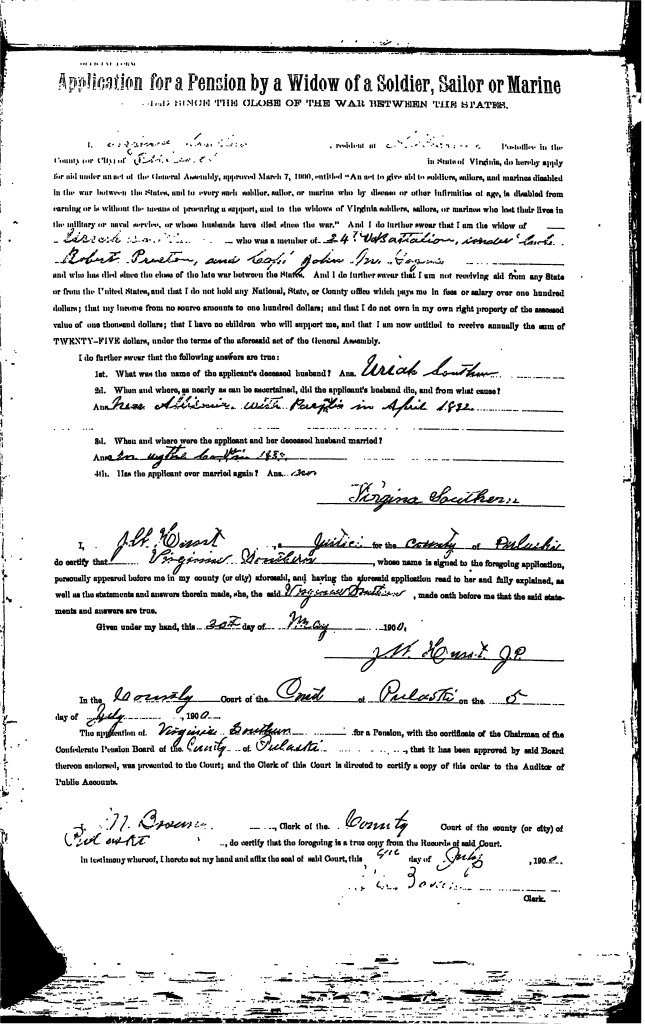 OFFICIAL FORM
Application for a Pension by a Widow of a Soldier, Sailor or Marine
DIED SINCE THE CLOSE OF THE WAR BETWEEN THE STATES.
I, Virginia Southern, resident at Postoffice in the
County (or City) of Pulaski in State of Virginia, do hereby apply
for aid under an act of the General Assembly, approved March 7, 1900, entitled "An act to give aid to soldiers, sailors, and marines disabled
in the war between the States, and to every such soldier, sailor, or marine who by disease or other infirmities of age, is disabled from
earning or is without the means of procuring a support, and to the widows of Virginia soldiers, sailors, or marines who lost their lives in
the military or naval service, or whose husbands have died since the war." And I do further swear that I am the widow of
who was a member of 24th Battalion, under
Robert Preston, and Capt John M.
and who has died since the close of the late war between the States. And I do further swear that I am not receiving aid from any State
or from the United States, and that I do not hold any National, State, or County office which pays me in fees or salary over one hundred
dollars; that my income from no source amounts to one hundred dollars; and that I do not own in my own right property of the assessed
value of one thousand dollars; that I have no children who will support me, and that I am now entitled to receive annually the sum of
TWENTY-FIVE dollars, under the terms of the aforesaid act of the General Assembly.
I do further swear that the following answers are true:
1st. What was the name of the applicant's deceased husband? Ans. Uriah Southern
2d. When and where, as nearly as can be ascertained, did the applicant's husband die, and from what cause?
Ans. Near with in April 1892
3d. When and where were the applicant and her deceased husband married?
Ans. In Wythe Co
4th. Has the applicant ever married again? Ans. no
Virgina Southern
I, J.W. Hurst, a Justice for the County of Pulaski
do certify that Virginia Southern, whose name is signed to the foregoing application,
personally appeared before me in my county (or city) aforesaid, and having the aforesaid application read to her and fully explained, as
well as the statements and answers therein made, she, the said Virginia Southern, made oath before me that the said state-
ments and answers are true.
Given under my hand, this 30th day of May 1900.
J.W. Hurst J.P.
In the County Court of the Court of Pulaski on the 5
day of July, 1900.
The application of Virginia Southern for a Pension, with the certificate of the Chairman of the
Confederate Pension Board of the County of Pulaski, that it has been approved by said Board
thereon endorsed, was presented to the Court; and the Clerk of this Court is directed to certify a copy of this order to the Auditor of
Public Accounts.
I, Clerk of the County Court of the county (or city) of
Pulaski, do certify that the foregoing is a true copy from the Records of said Court.
In testimony whereof, I hereto set my hand and affix the seal of said Court, this day of July, 1900.
Clerk.